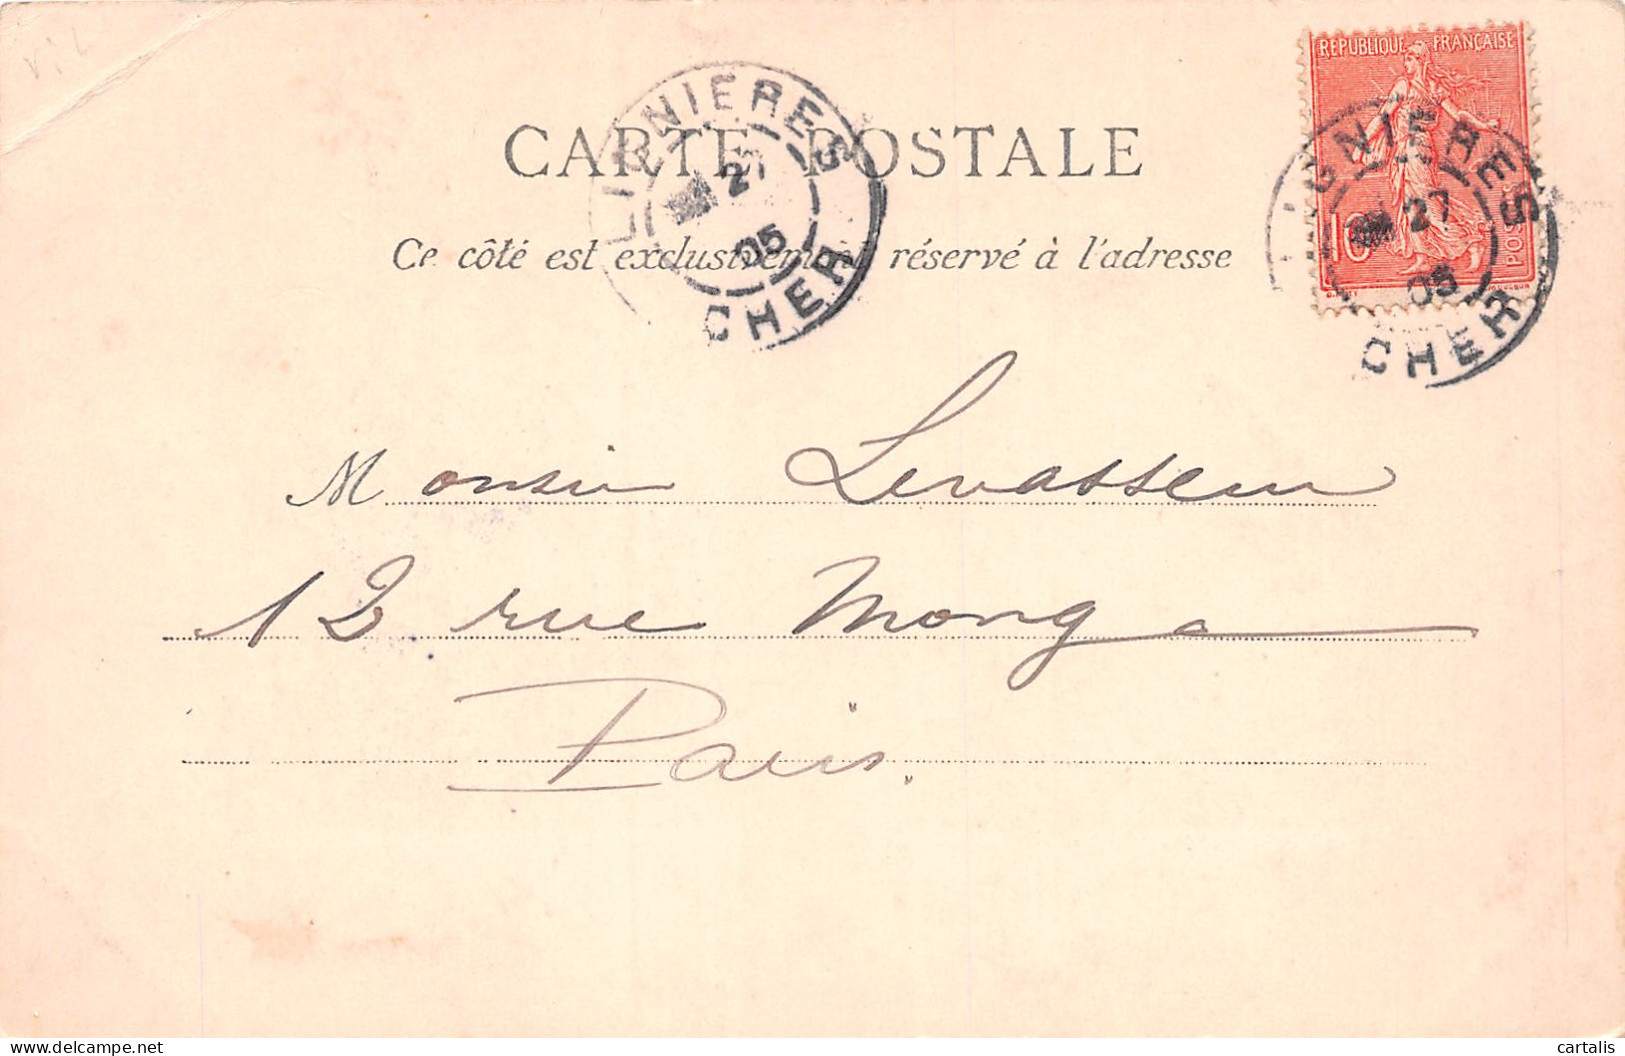 vil
RÉPUBLIQUE FRANÇAISE
10
POSTES
LIGNIERES
27
05
CHER
LIGNIERES
27
05
CHER
CARTE POSTALE
Ce côté est exclusivement réservé à l'adresse
Monsieur Levasseur
12 rue Monge
Paris.
cartalis